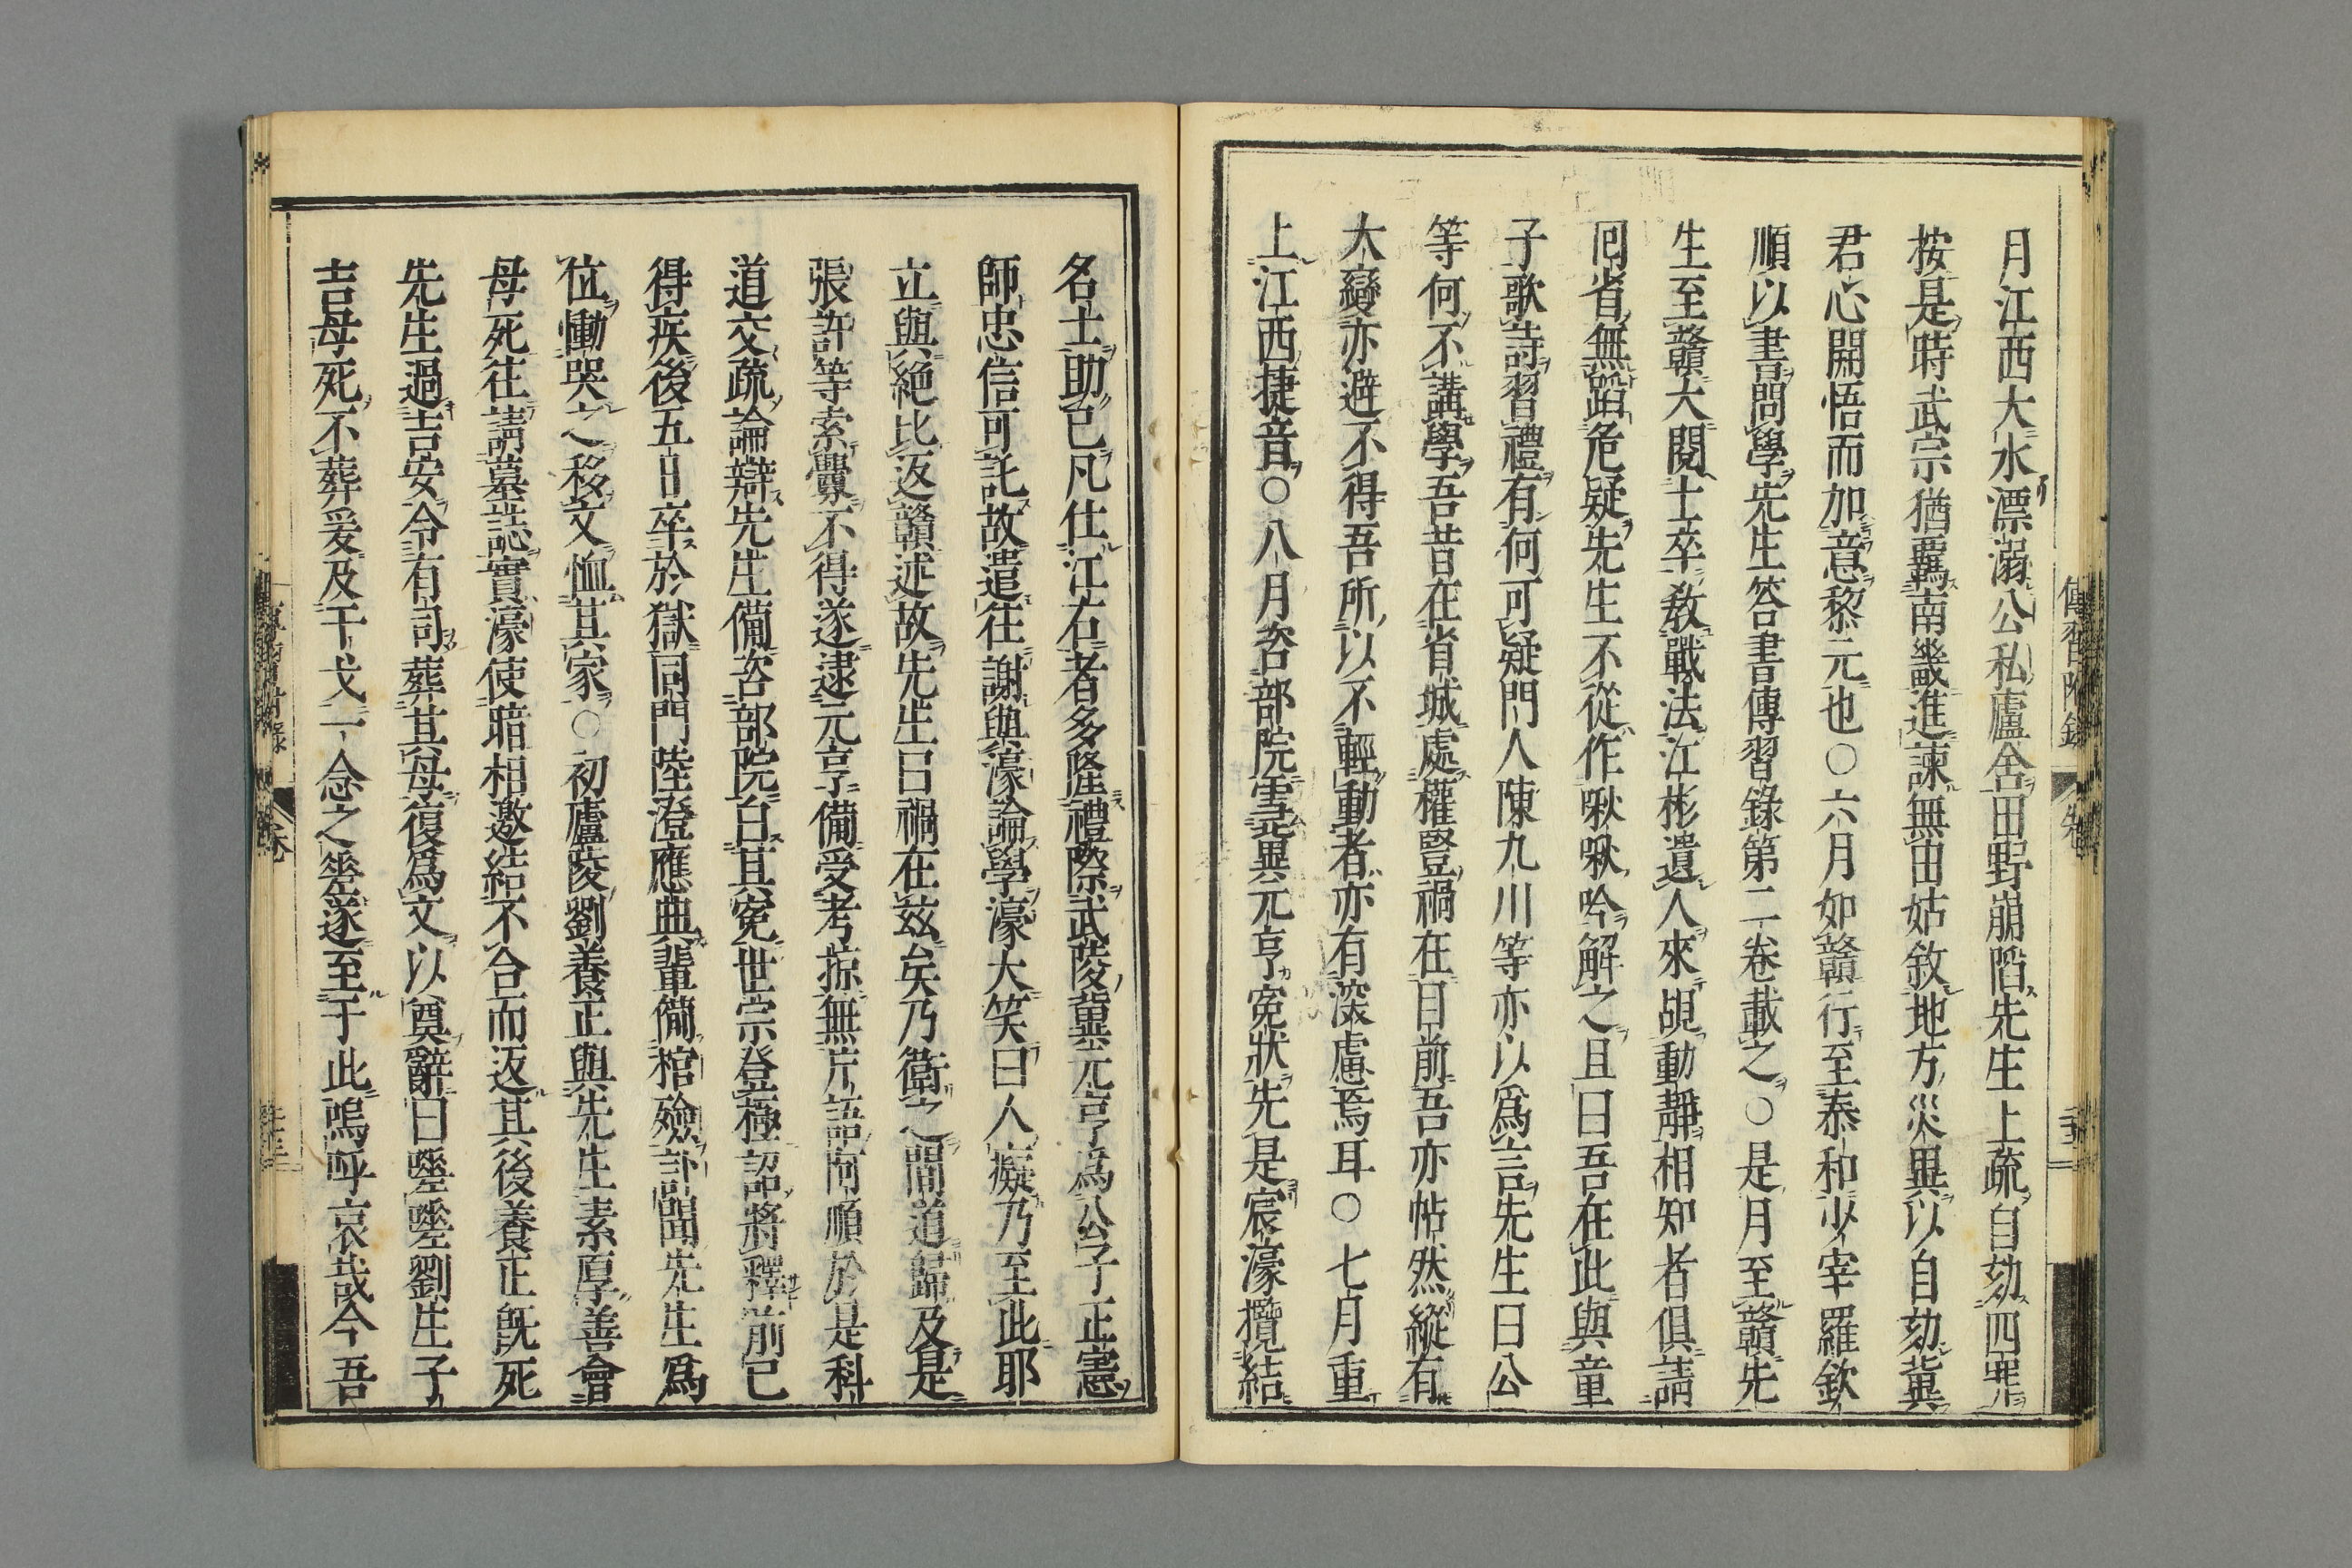 月江西大水漂溺公私廬舍田野崩陷先生上疏自劾四罪
按是時武宗猶羈南畿進諫無由姑敘地方災異以自劾冀
君心開悟而加意黎元也○六月如贛行至泰和少宰羅欽
順以書問學先生答書傳習錄第二卷載之○是月至贛先
生至贛大閱士卒教戰法江彬遺人來覘動靜相知者俱請
囘省無蹈危疑先生不從作啾啾吟解之且曰吾在此與童
子歌詩習禮有何可疑門人陳九川等亦以爲言先生曰公
等何不講學吾昔在省城處權豎禍在目前吾亦帖然縱有
大變亦避不得吾所以不輕動者亦有深慮焉耳○七月重
上江西捷音○八月咨部院雪冀元亨寃狀先是宸濠攬結
名士助己凡仕江右者多隆禮際武陵冀元亨爲公子正憲
師忠信可託故遣往謝與濠論學濠大笑曰人癡乃至此耶
立與絶比返贛述故先生曰禍在茲矣乃衛之間道歸及是
張許等索釁不得遂逮元亨備受考掠無片語阿順於是科
道交疏論辯先生備咨部院白其寃世宗登極詔將釋前已
得疾後五日卒於獄同門陸澄應典輩備棺殮訃聞先生爲
位慟哭之移文恤其家○初廬陵劉養正與先生素厚善會
母死往請墓誌實濠使暗相邀結不合而返其後養正既死
先生過吉安令有司葬其母復爲文以奠辭曰嗟嗟劉生子
吉母死不葬爰及干戈一念之差遂至于此嗚呼哀哉今吾
傳習附錄
卷